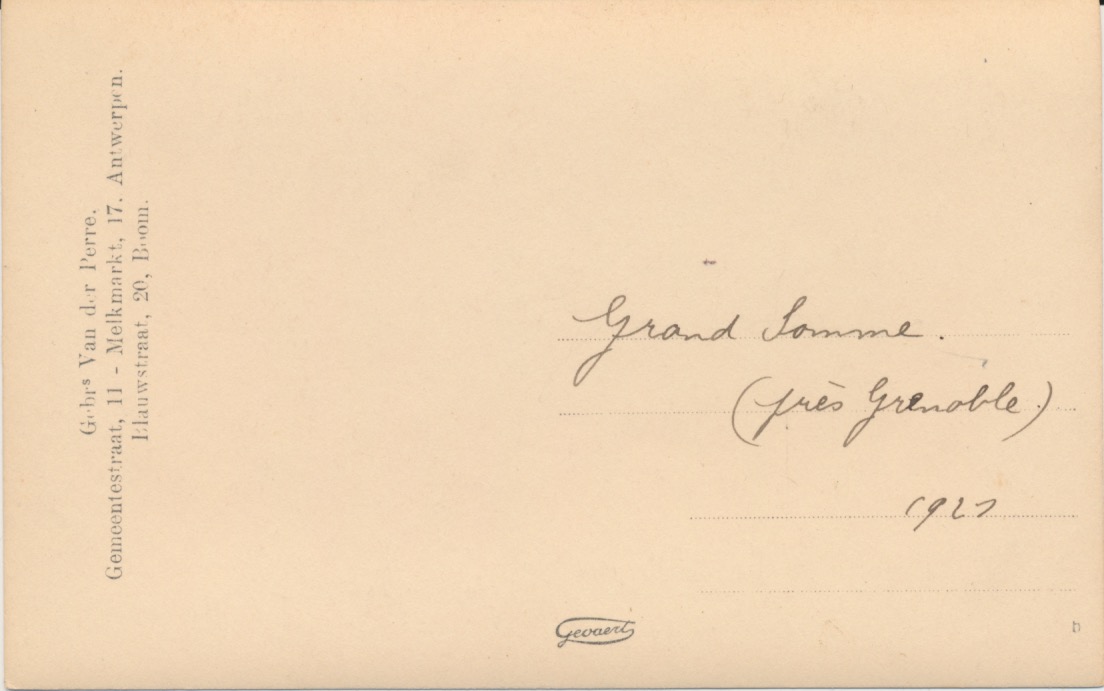 Gebrs Van der Perre.
Gemeentestraat, 11 - Melkmarkt, 17. Antwerpen.
Blauwstraat, 20, Boom.
Grand Somme.
(près Grenoble.)
1921
Gevaert
D